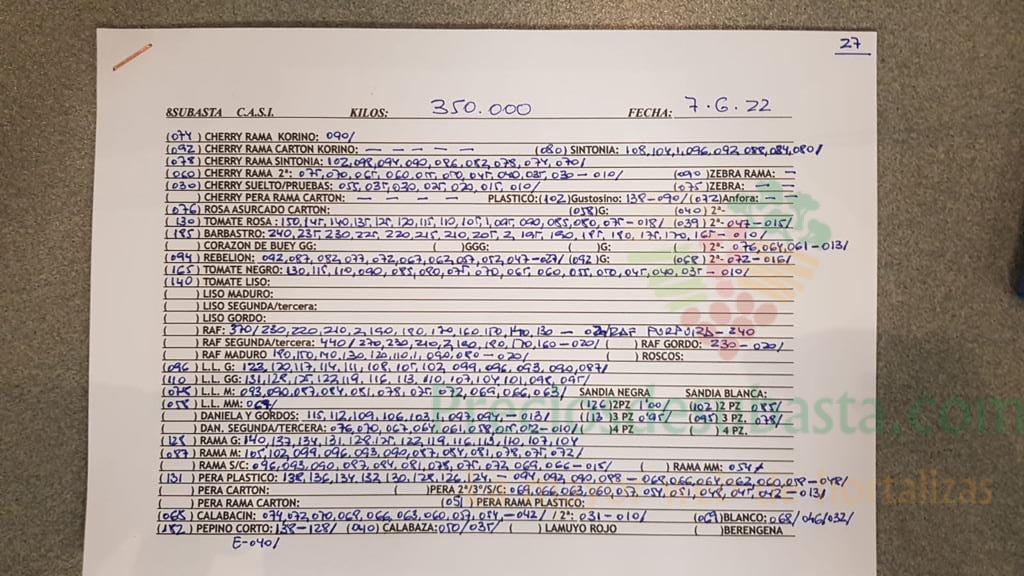 27
8SUBASTA C.A.S.I. KILOS: 350.000 FECHA: 7.6.22
(074) CHERRY RAMA KORINO: 090/
(092) CHERRY RAMA CARTON KORINO: - - - - - (080) SINTONIA: 108,104,1,096,092,088,084,080/
(078) CHERRY RAMA SINTONIA: 102,098,094,090,086,082,078,074,070/
(060) CHERRY RAMA 2ª: 075,070,065,060,055,050,045,040,035,030-010/ (090) ZEBRA RAMA: -
(030) CHERRY SUELTO/PRUEBAS: 055,035,030,025,020,015,010/ (075) ZEBRA: - -
( ) CHERRY PERA RAMA CARTON: - - - - PLASTICO:(102) Gustosino: 138-090/(072)Anfora: - -
(076) ROSA ASURCADO CARTON: (058)G: (040) 2ª-
(130) TOMATE ROSA: 150,145,140,135,125,120,115,110,105,1,095,090,085,080,075-018/ (039) 2ª-047-015/
(185) BARBASTRO: 240,235,230,225,220,215,210,205,2,195,190,185,180,175,170,165-010/
( ) CORAZON DE BUEY GG: ( )GGG: ( )G: ( ) 2ª- 076,064,061-013/
(094) REBELION: 092,087,082,077,072,067,062,057,052,047-027/ (092)G: (068) 2ª-072-016/
(165) TOMATE NEGRO: 130,115,110,090,085,080,075,070,065,060,055,050,045,040,035-010/
(140) TOMATE LISO:
( ) LISO MADURO:
( ) LISO SEGUNDA/tercera:
( ) LISO GORDO:
( ) RAF: 370/230,220,210,2,190,180,170,160,150,140,130- RAF 240
( ) RAF SEGUNDA/tercera: 440/270,230,210,2,190,180,170,160-020/ ( ) RAF GORDO: 230-020/
( ) RAF MADURO 180,150,140,130,120,110,1,090,080-020/ ( ) ROSCOS:
(096) L.L. G: 123,120,117,114,111,108,105,102,099,096,093,090,087/
(110) L.L. GG: 131,128,125,122,119,116,113,110,107,104,101,098,095/
(075) L.L. M: 093,090,087,084,081,078,075,072,069,066,063/ SANDIA NEGRA SANDIA BLANCA:
(058) L.L. MM: 067 (126)2PZ 1'00/ (102)2 PZ 085/
( ) DANIELA Y GORDOS: 115,112,109,106,103,1,097,094-013/ (113)3 PZ 095/ (095) 3 PZ. 078/
( ) DAN. SEGUNDA/TERCERA: 076,070,067,064,061,058,055,052-010/ ( )4 PZ ( ) 4 PZ.
(128) RAMA G: 140,137,134,131,128,125,122,119,116,113,110,107,104
(087) RAMA M: 105,102,099,096,093,090,087,084,081,078,075,072/
( ) RAMA S/C: 096,093,090,087,084,081,078,075,072,069,066-015/ ( ) RAMA MM: 054/
(131) PERA PLASTICO: 138,136,134,132,130,128,126,124-094,092,090,088-068,066,064,062,060,058-048/
( ) PERA CARTON: ( )PERA 2ª/3ª/S/C: 069,066,063,060,057,054,051,048,045,042-013/
( ) PERA RAMA CARTON: (05) PERA RAMA PLASTICO:
(068) CALABACIN: 074,072,070,068,066,063,060,057,054-042/ 2ª: 031-010/ (069) BLANCO: 068/046/032/
(182) PEPINO CORTO: 138-128/ (040) CALABAZA: 050/035/ ( ) LAMUYO ROJO ( )BERENGENA
E-040/